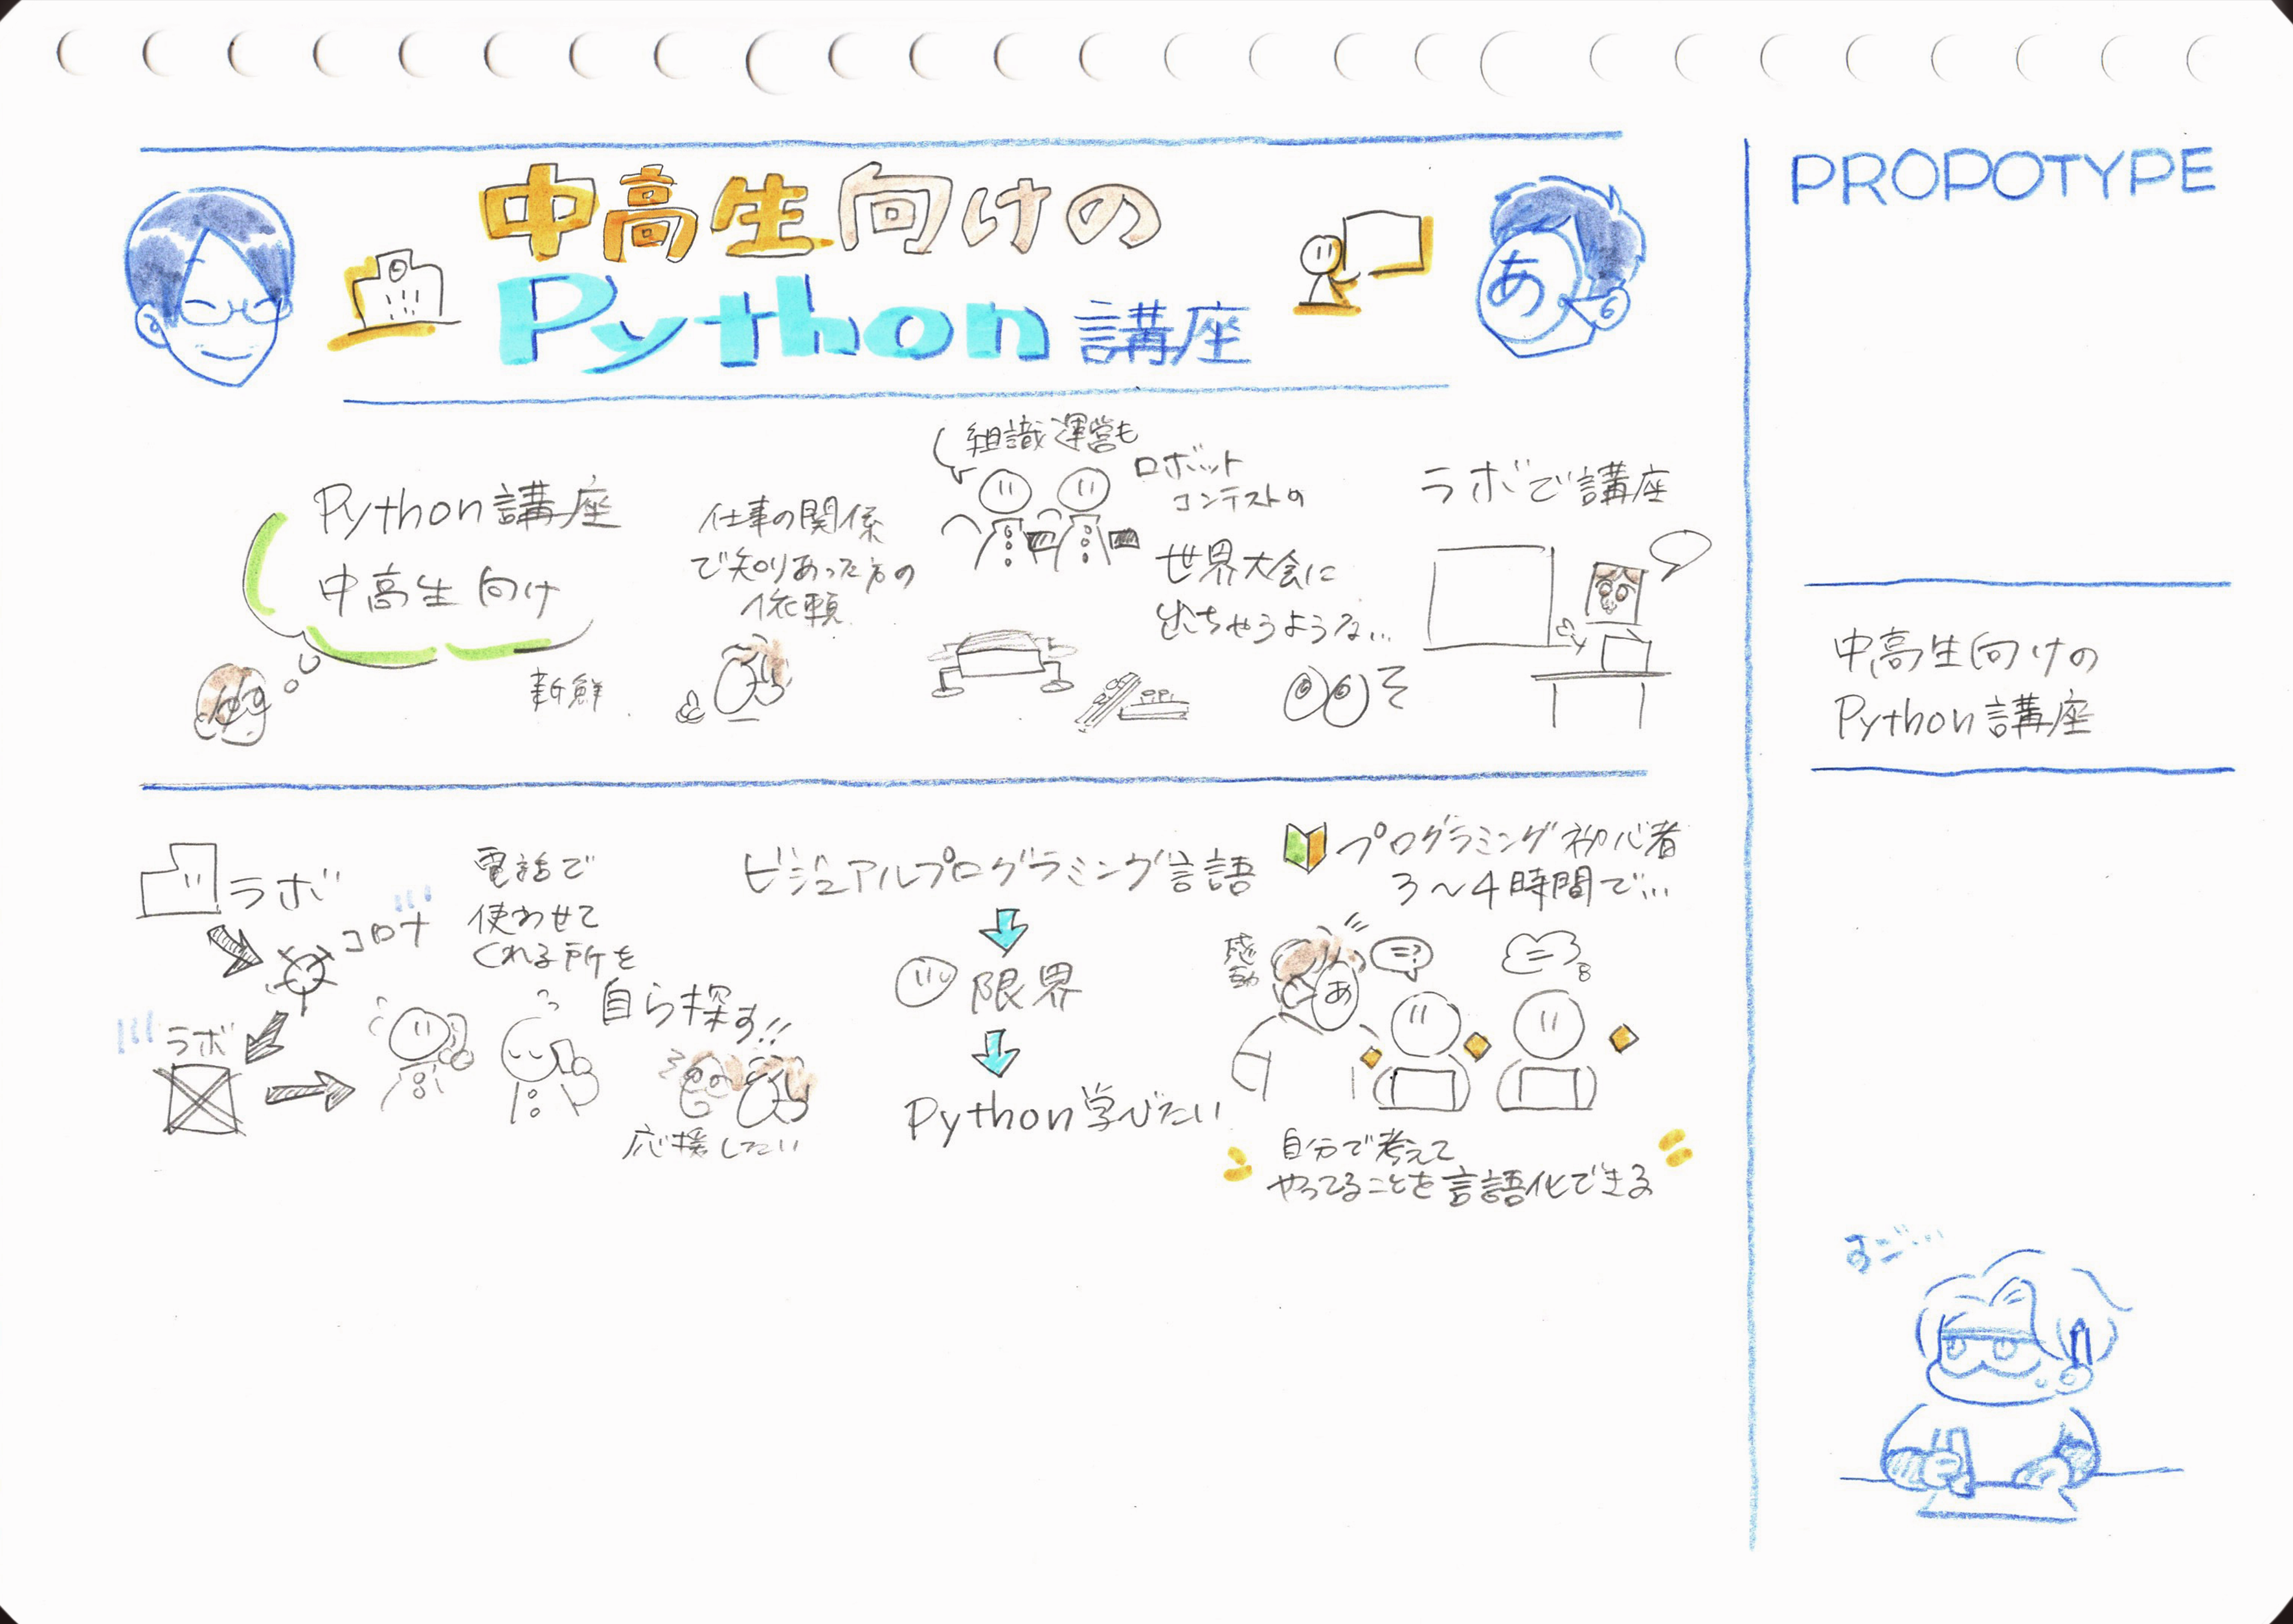 中高生向けの
Python 講座
あ
Python 講座
中高生 向け
新鮮
仕事の関係
で知りあった方の
依頼
組織運営も
ロボット
コンテストの
世界大会に
出ちゃうような...
ラボで講座
ラボ
コロナ
ラボ
電話で
使わせて
くれる所を
自ら探す!!
応援したい
ビジュアルプログラミング言語
限界
Python 学びたい
プログラミング初心者
3〜4時間で...
感動
あ
自分で考えて
やってることを言語化できる
PROPOTYPE
中高生向けの
Python 講座
すご...